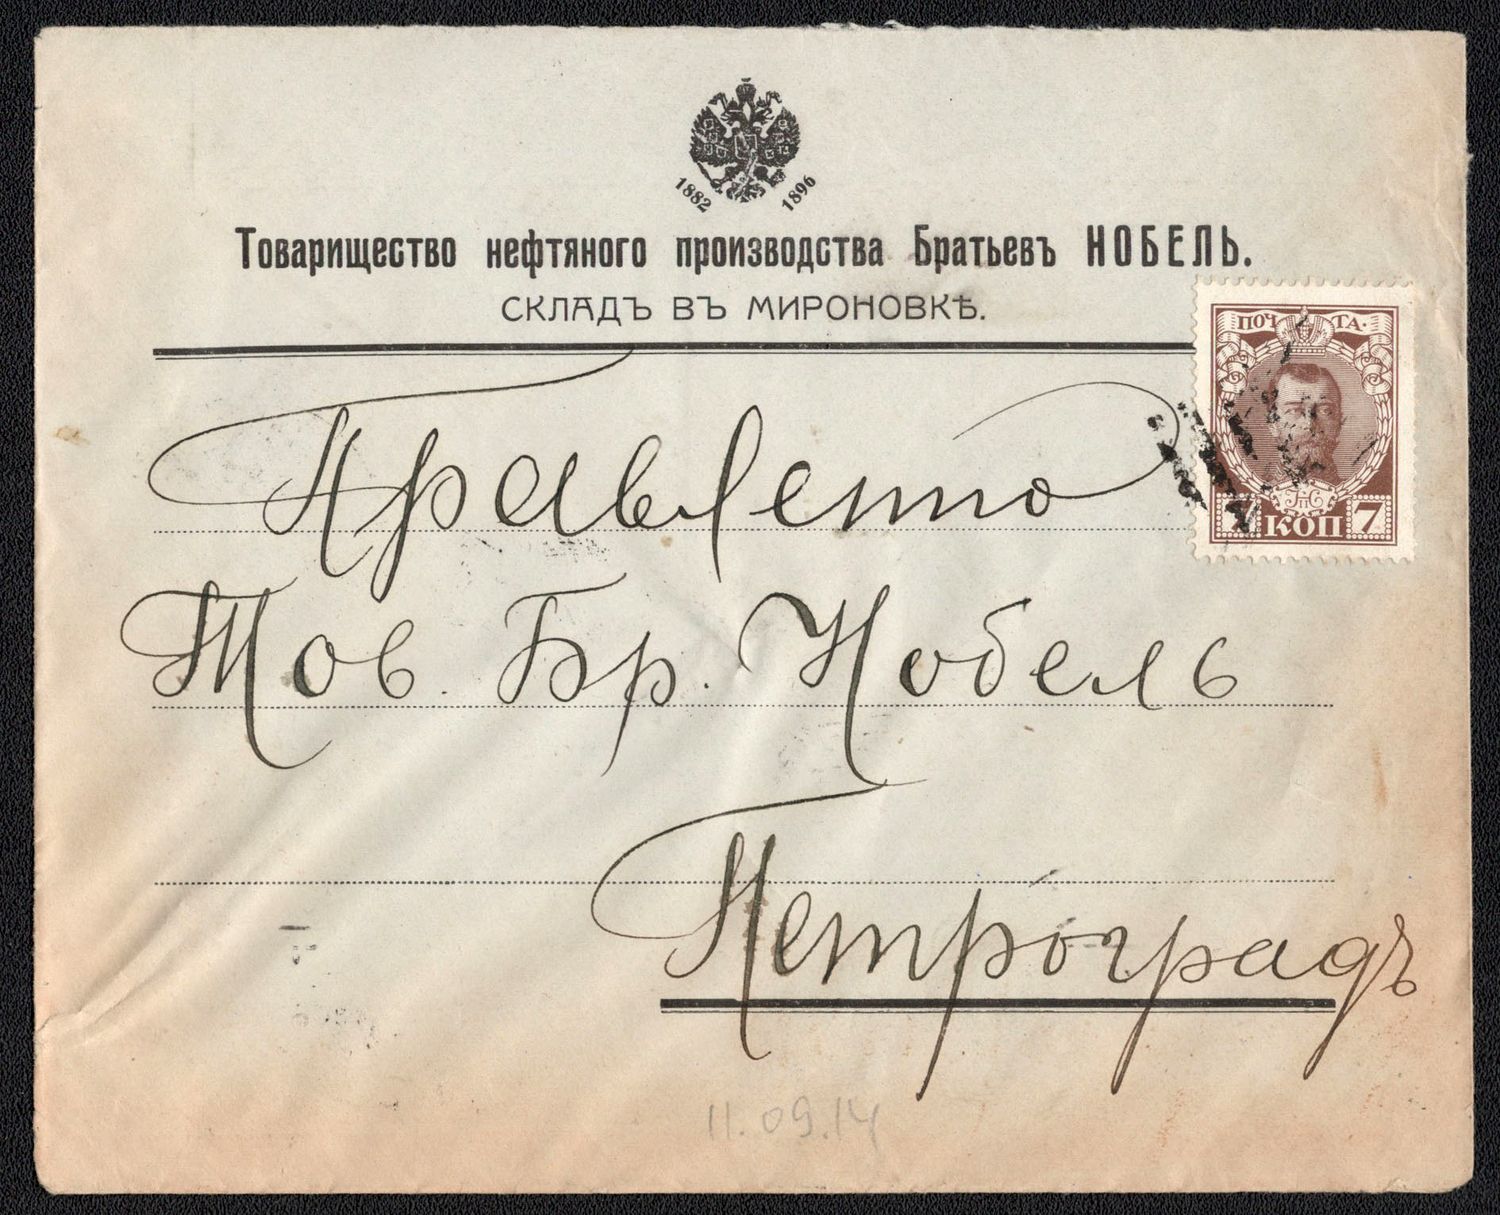 1882 1896
Товарищество нефтяного производства Братьевъ НОБЕЛЬ.
СКЛАДЪ ВЪ МИРОНОВКѢ.
ПОЧТА.
7 КОП 7
Правленiю
Тов. Бр. Нобель
Петроградъ
11.09.14